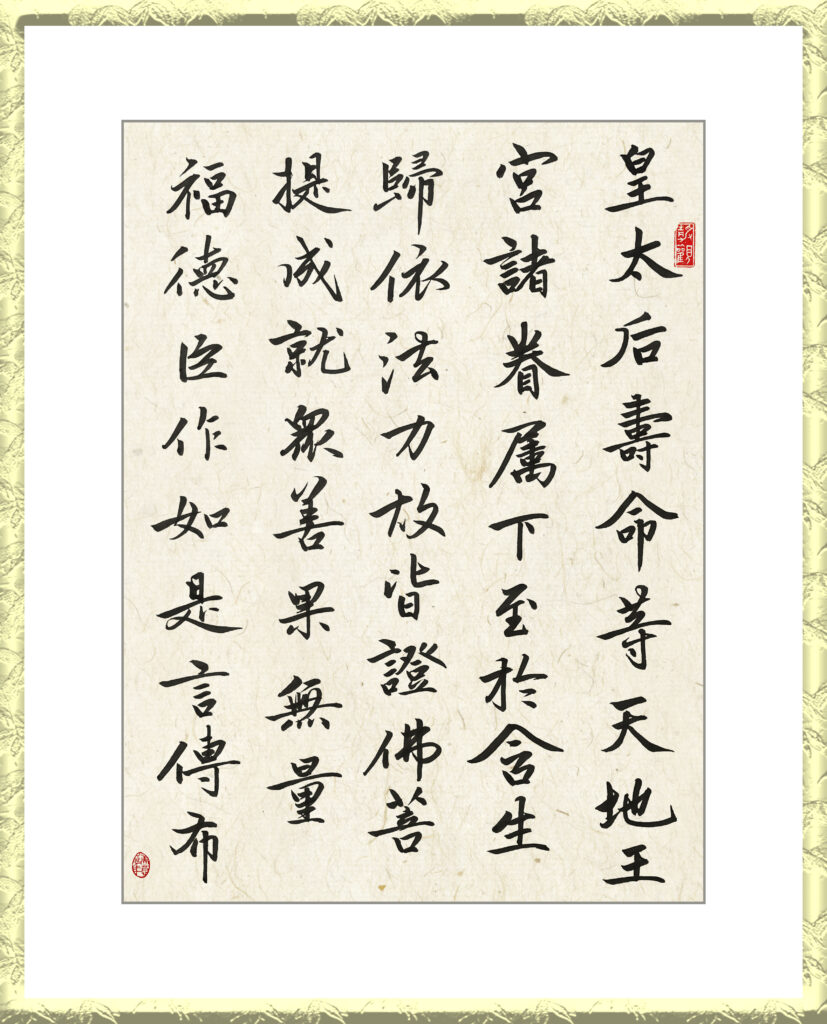 皇太后壽命等天地王
宮諸眷属下至於含生
歸依法力故皆證佛菩
提成就眾善果無量
福德臣作如是言傳布